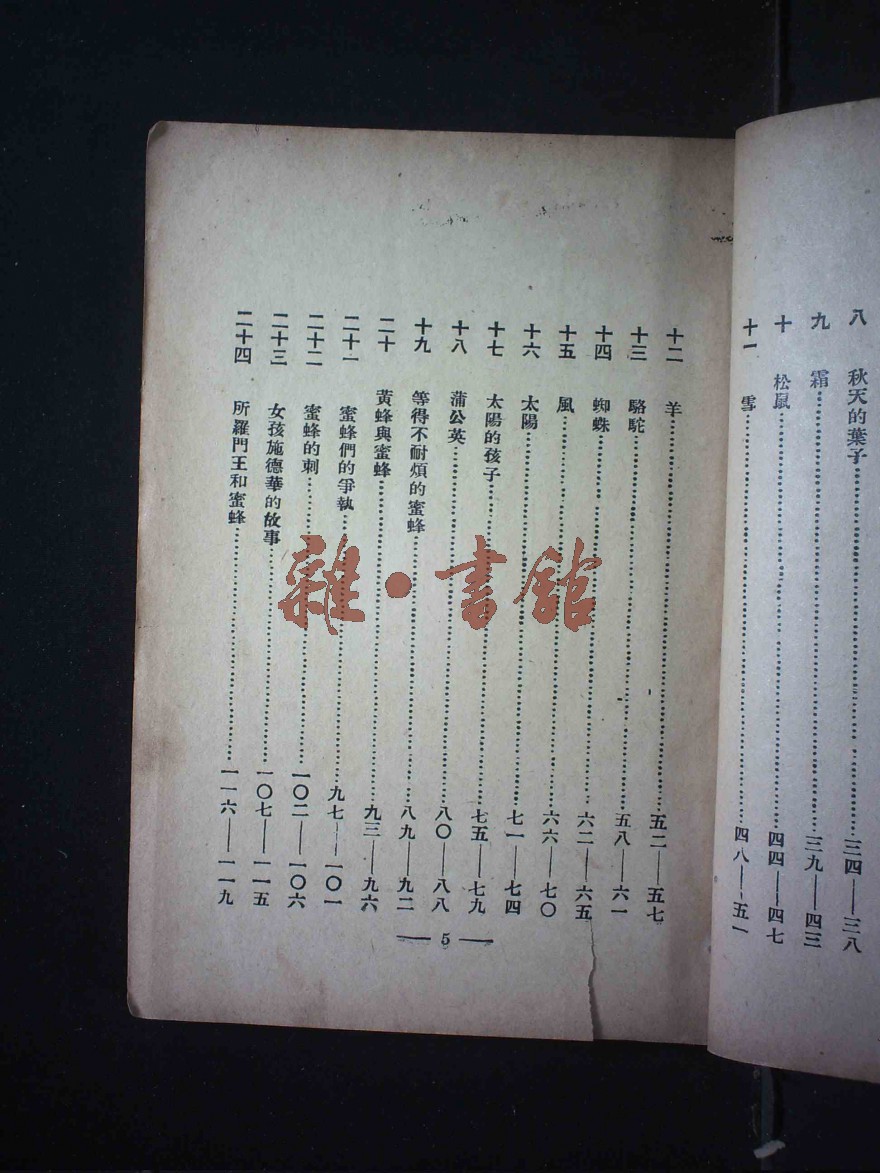 八 秋天的葉子……三四——三八
九 霜……三九——四三
十 松鼠……四四——四七
十一 雪……四八——五一
十二 羊……五二——五七
十三 駱駝……五八——六一
十四 蜘蛛……六二——六五
十五 風……六六——七〇
十六 太陽……七一——七四
十七 太陽的孩子……七五——七九
十八 蒲公英……八〇——八八
十九 等得不耐煩的蜜蜂……八九——九二
二十 黃蜂與蜜蜂……九三——九六
二十一 蜜蜂們的爭執……九七——一〇一
二十二 蜜蜂的刺……一〇二——一〇六
二十三 女孩施德華的故事……一〇七——一一五
二十四 所羅門王和蜜蜂……一一六——一一九
— 5 —
雜·書館